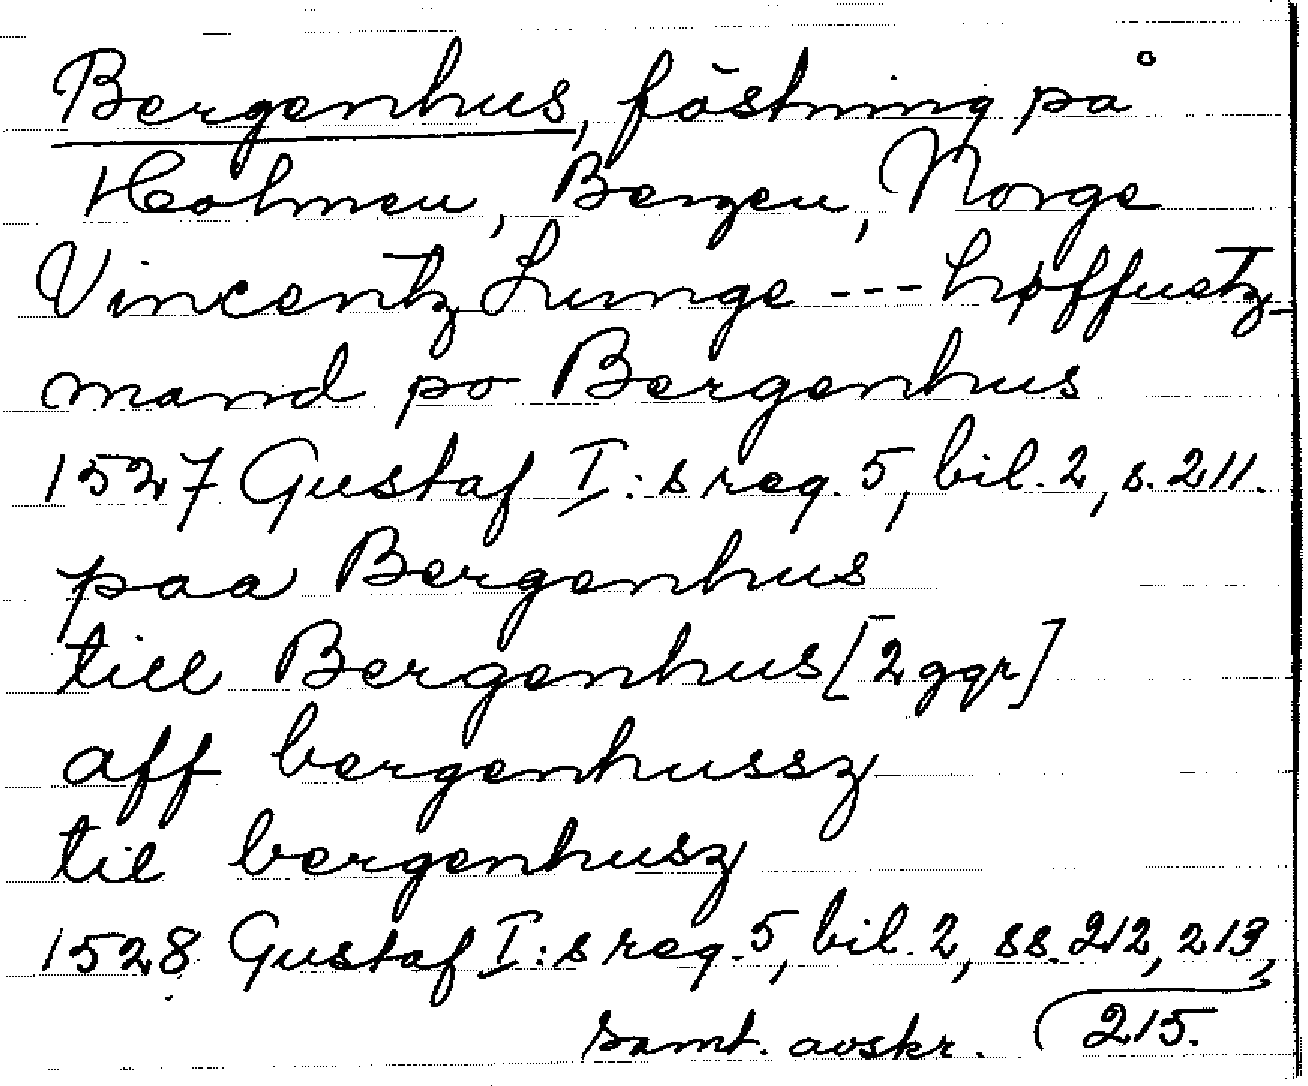 Bergenhus, fästning på
Holmen, Bergen, Norge
Vincentz Lunge --- høffuetz-
mand po Bergenhus
1527 Gustaf I:s reg. 5, bil. 2, s. 211.
paa Bergenhus
till Bergenhus [2 ggr]
aff bergenhussz
til bergenhusz
1528 Gustaf I:s reg. 5, bil. 2, ss. 212, 213,
samt. avskr. 215.